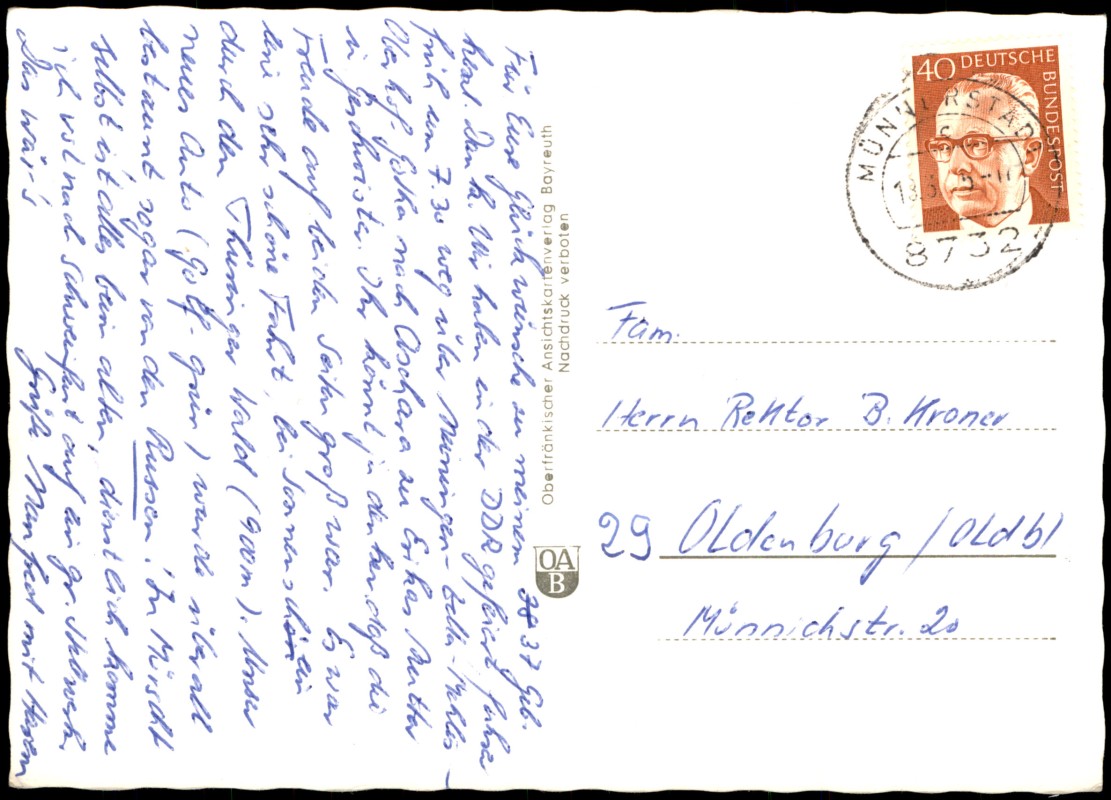 Für Eure Glückwünsche zu meinem 37 Geb.
herzl. Dank. Wir haben in der DDR gefeiert, fuhren
früh um 7.30 weg über Meiningen-Zella-Mehlis-
Oberhof Gotha nach Aschara zu Erikas Mutter
u Geschwister. Ihr könnt ja denken daß die
Freude auf beiden Seiten groß war. Es war
eine sehr schöne Fahrt, bei Sonnenschein
durch den Thüringer Wald (900m). Unser
neues Auto (Golf-grün) wurde überall
bestaunt sogar von den Russen. In Mürscht
selbst ist alles beim alten, dienstlich komme
ich vol nach Schweinfurt auf ein gr. Stellwerk.
Das wär's
Grüße Manfred mit
Oberfränkischer Ansichtskartenverlag Bayreuth
Nachdruck verboten
OA
B
40 DEUTSCHE BUNDESPOST
MÜNNERSTADT
8732
Fam.
Herrn Rektor B. Kroner
29 Oldenburg/Oldbl
Münnichstr. 20